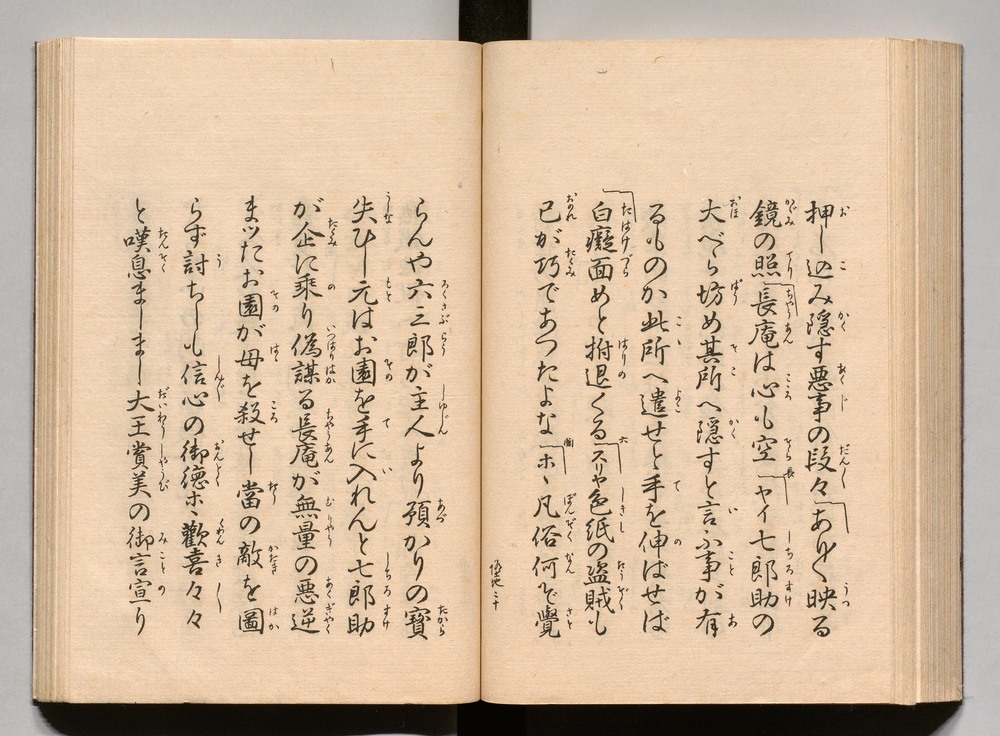 押し込み隠す悪事の段々「あり〳〵映る
鏡の照「長庵は心も空「ヤイ七郎助の
大べら坊め其所へ隠すと言ふ事が有
るものか此所へ遣せと手を伸ばせば
「白癡面めと拊退くる「スリや色紙の盗賊も
己が巧であつたよな「ホヽ凡俗何ぞ覺
らんや六三郎が主人より預かりの寳
失ひし元はお園を手に入れんと七郎助
が企に乘り偽謀る長庵が無量の悪逆
まツたお園が母を殺せし當の敵を圖
らず討ちしも信心の御德ホヽ歡喜々々
と嘆息ましまし大王賞美の御言宣り